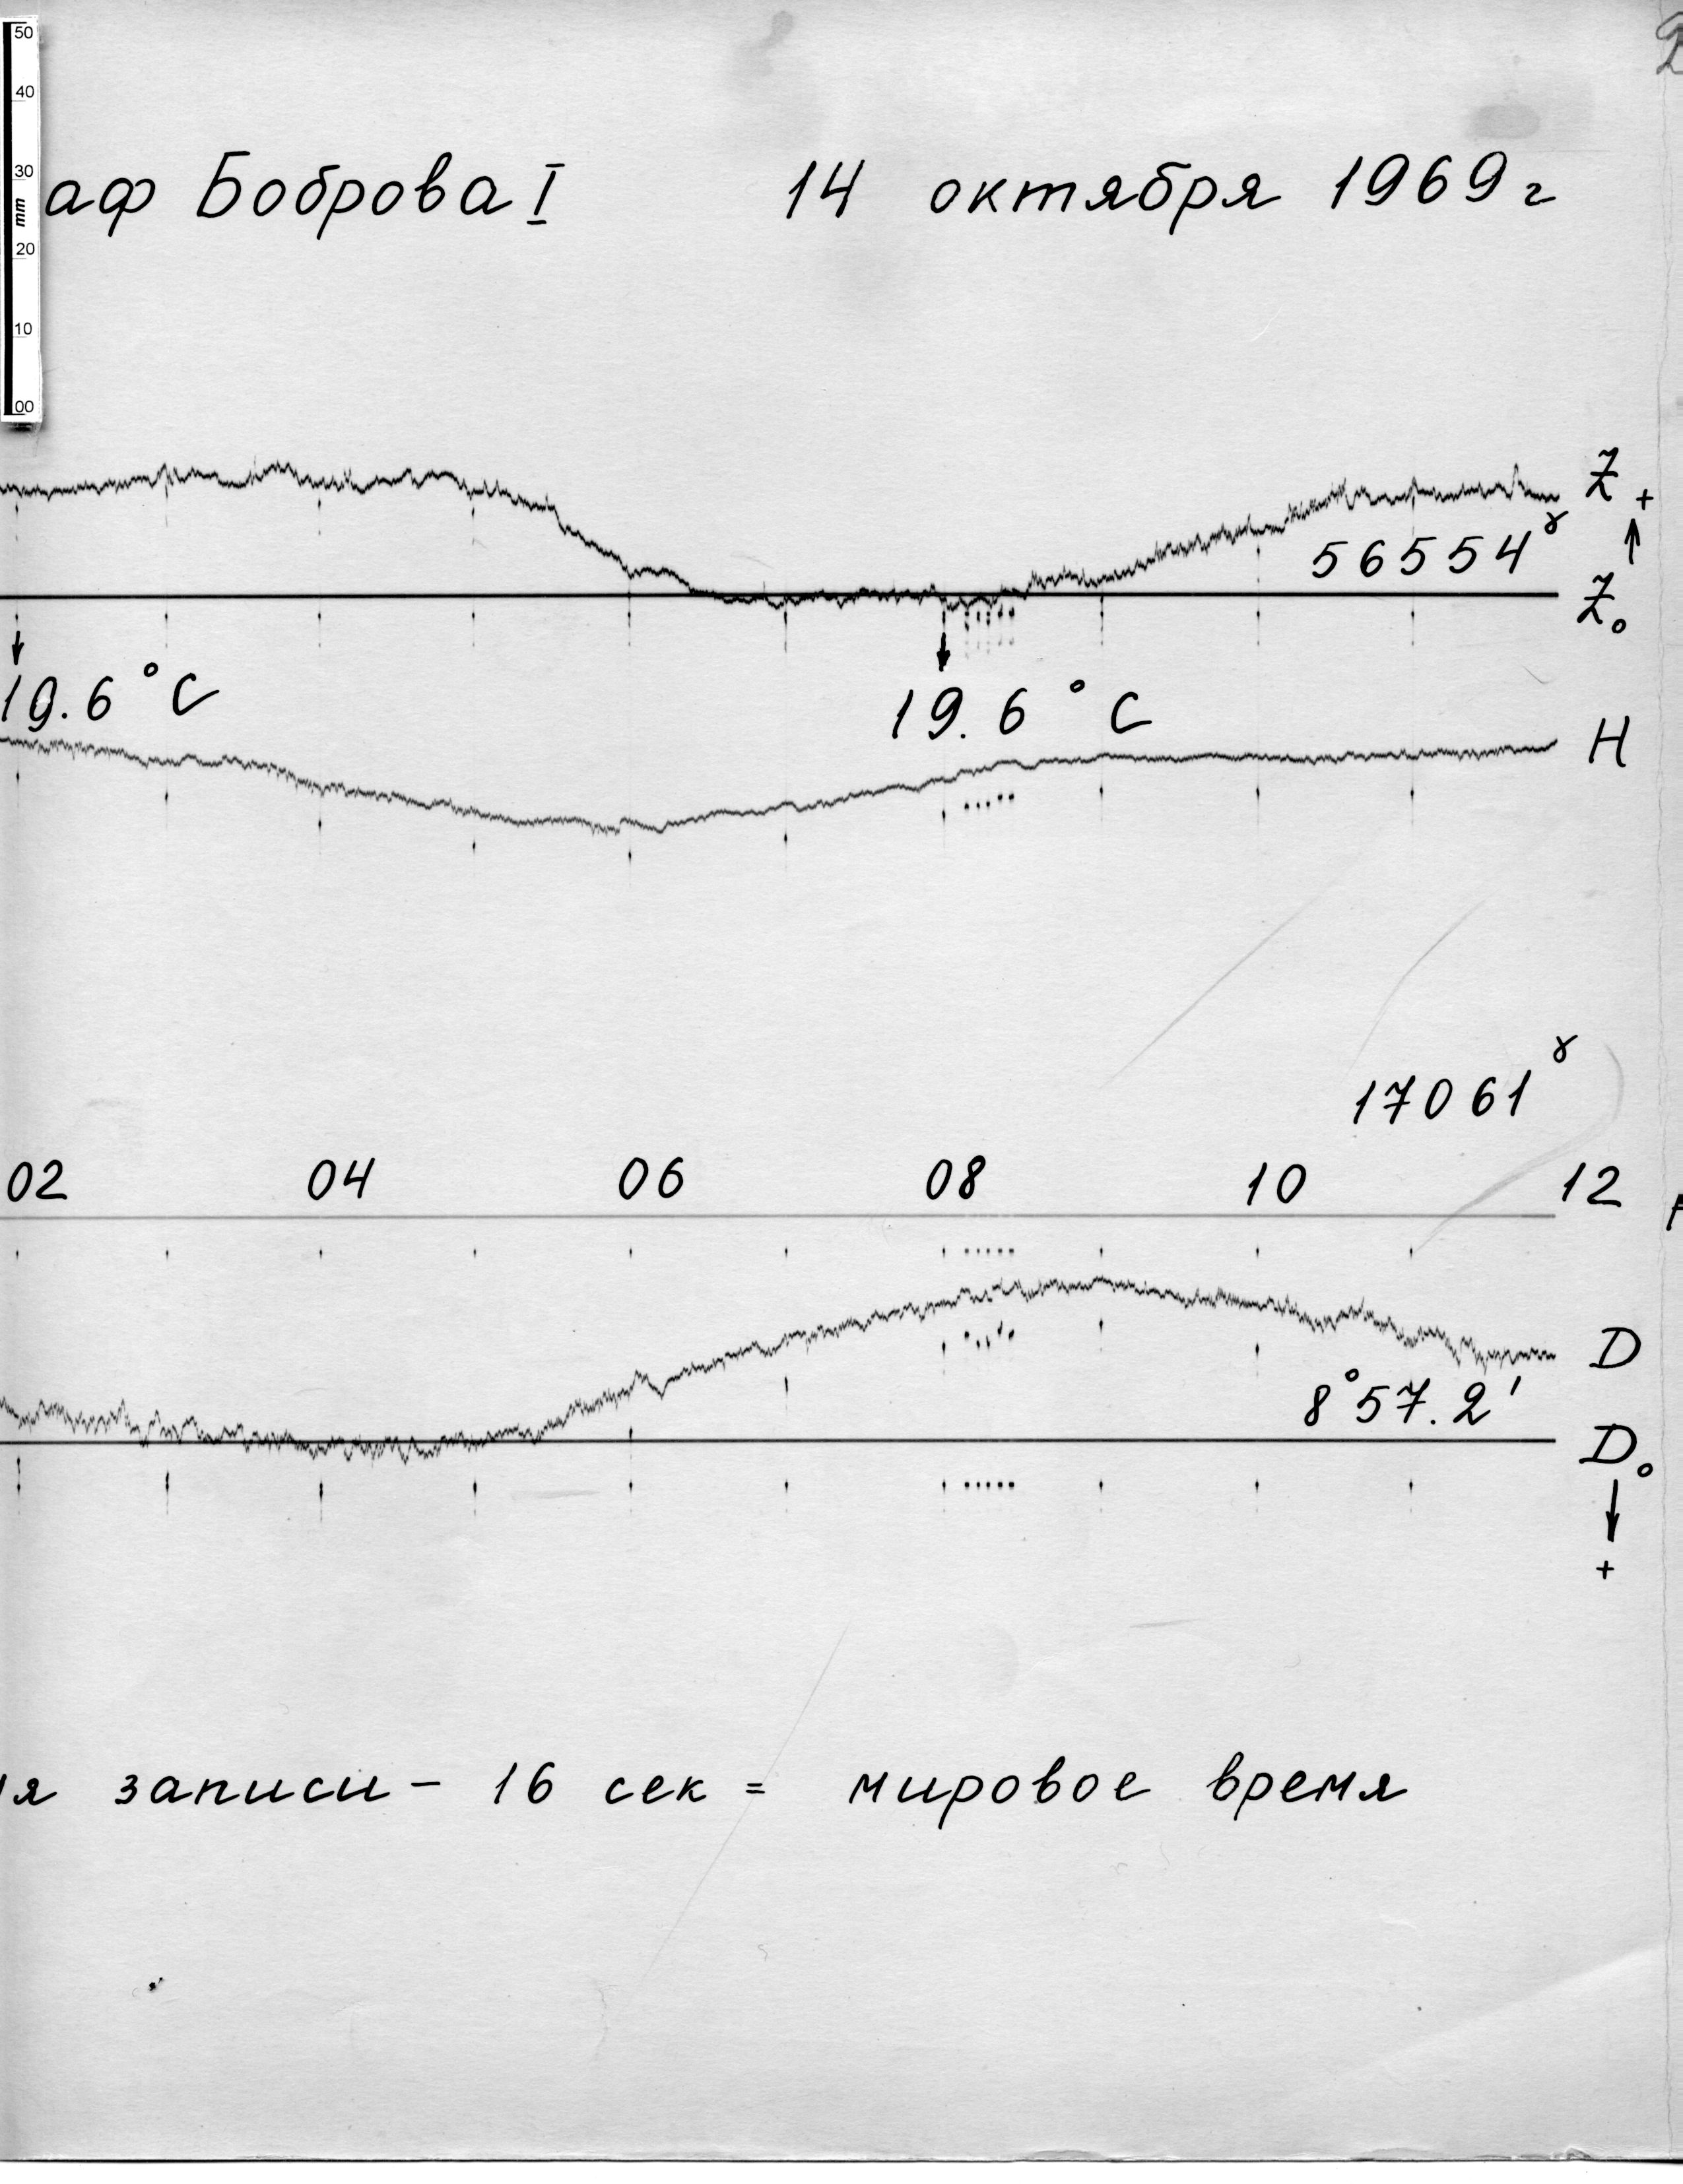 50
40
30
mm
20
10
00
аф Боброва I 14 октября 1969 г
Z +
56554 γ
Z₀
19.6 °C 19.6 °C
H
17061 γ
02 04 06 08 10 12
D
8°57.2'
D₀
+
я записи - 16 сек = мировое время